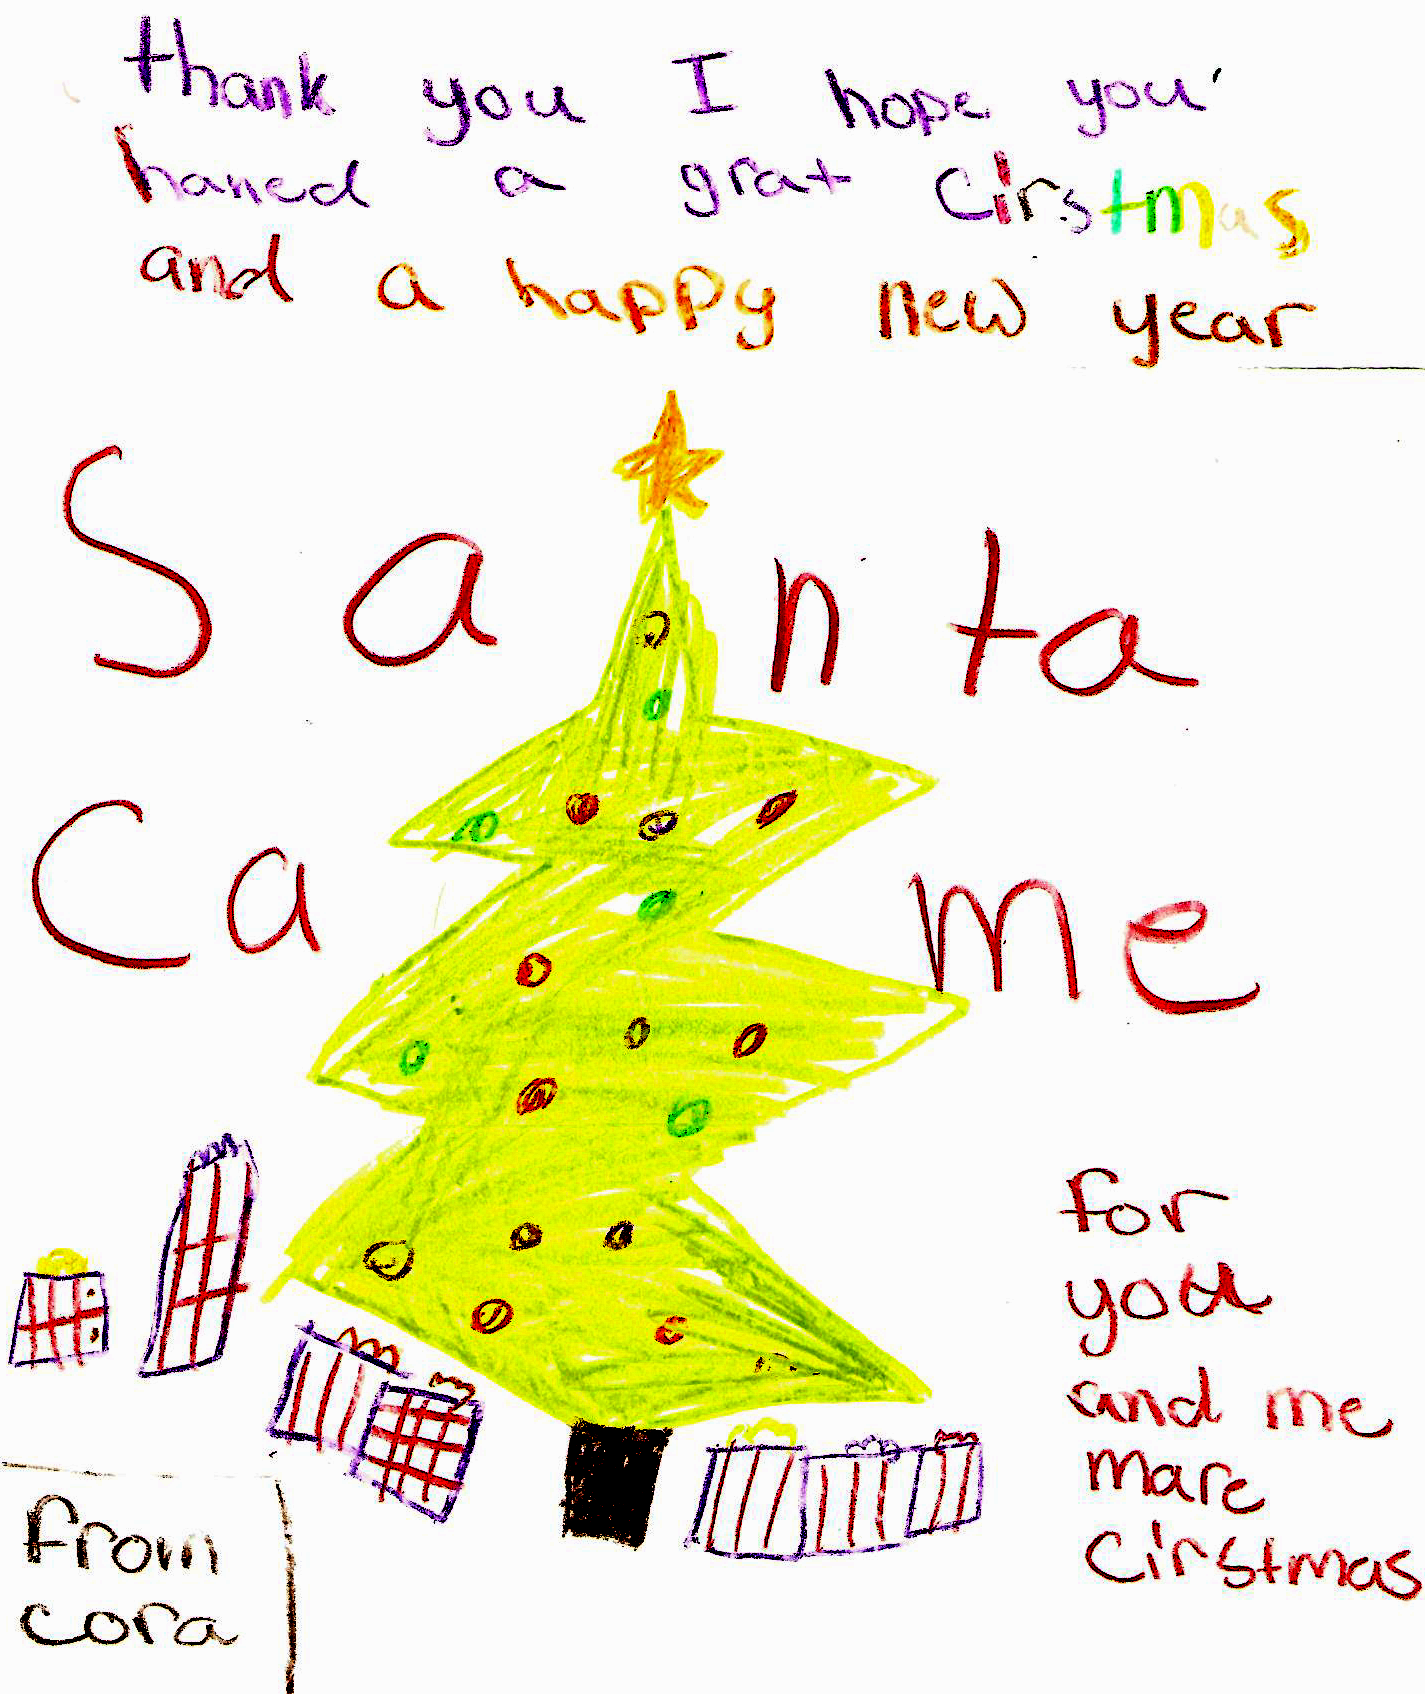 thank you I hope you
haned a grat Cirstmas
and a happy new year
Santa
Came
for
you
and me
mare
Cirstmas
from
cora